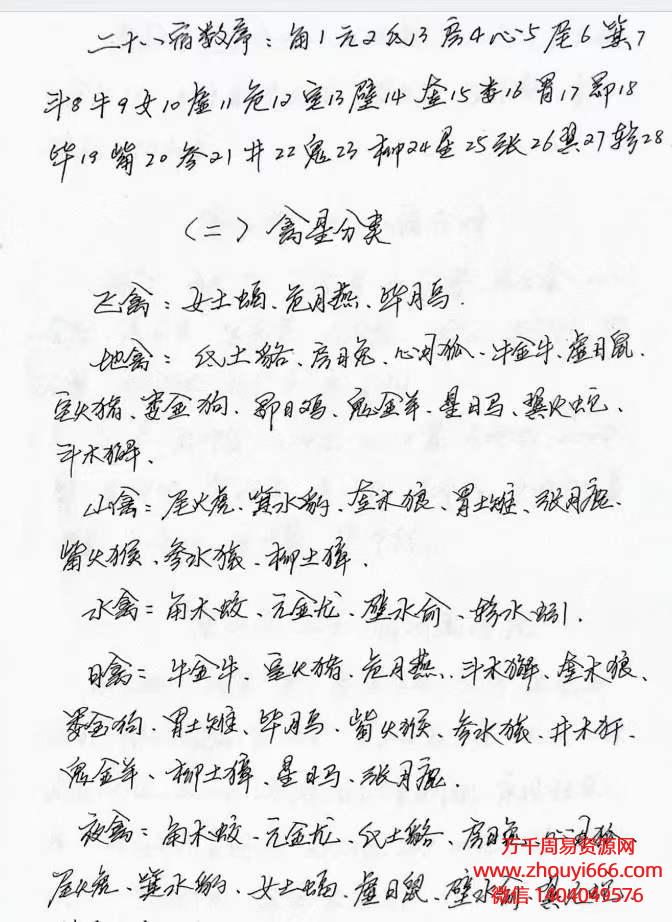 二十八宿数序：角1 亢2 氐3 房4 心5 尾6 箕7
斗8 牛9 女10 虚11 危12 室13 壁14 奎15 娄16 胃17 昴18
毕19 觜20 参21 井22 鬼23 柳24 星25 张26 翼27 轸28
（二）禽星分类
飞禽：女土蝠、危月燕、毕月乌.
地禽：氐土貉、房日兔、心月狐、牛金牛、虚日鼠、
室火猪、娄金狗、昴日鸡、鬼金羊、星日马、翼火蛇、
斗木獬.
山禽：尾火虎、箕水豹、奎木狼、胃土雉、张月鹿、
觜火猴、参水猿、柳土獐.
水禽：角木蛟、亢金龙、壁水俞、轸水蚓.
日禽：牛金牛、室火猪、危月燕、斗木獬、奎木狼、
娄金狗、胃土雉、毕月乌、觜火猴、参水猿、井木犴、
鬼金羊、柳土獐、星日马、张月鹿.
夜禽：角木蛟、亢金龙、氐土貉、房日兔、心月狐、
尾火虎、箕水豹、女土蝠、虚日鼠、壁水
万千周易资源网
www.zhouyi666.com
微信:1404049576